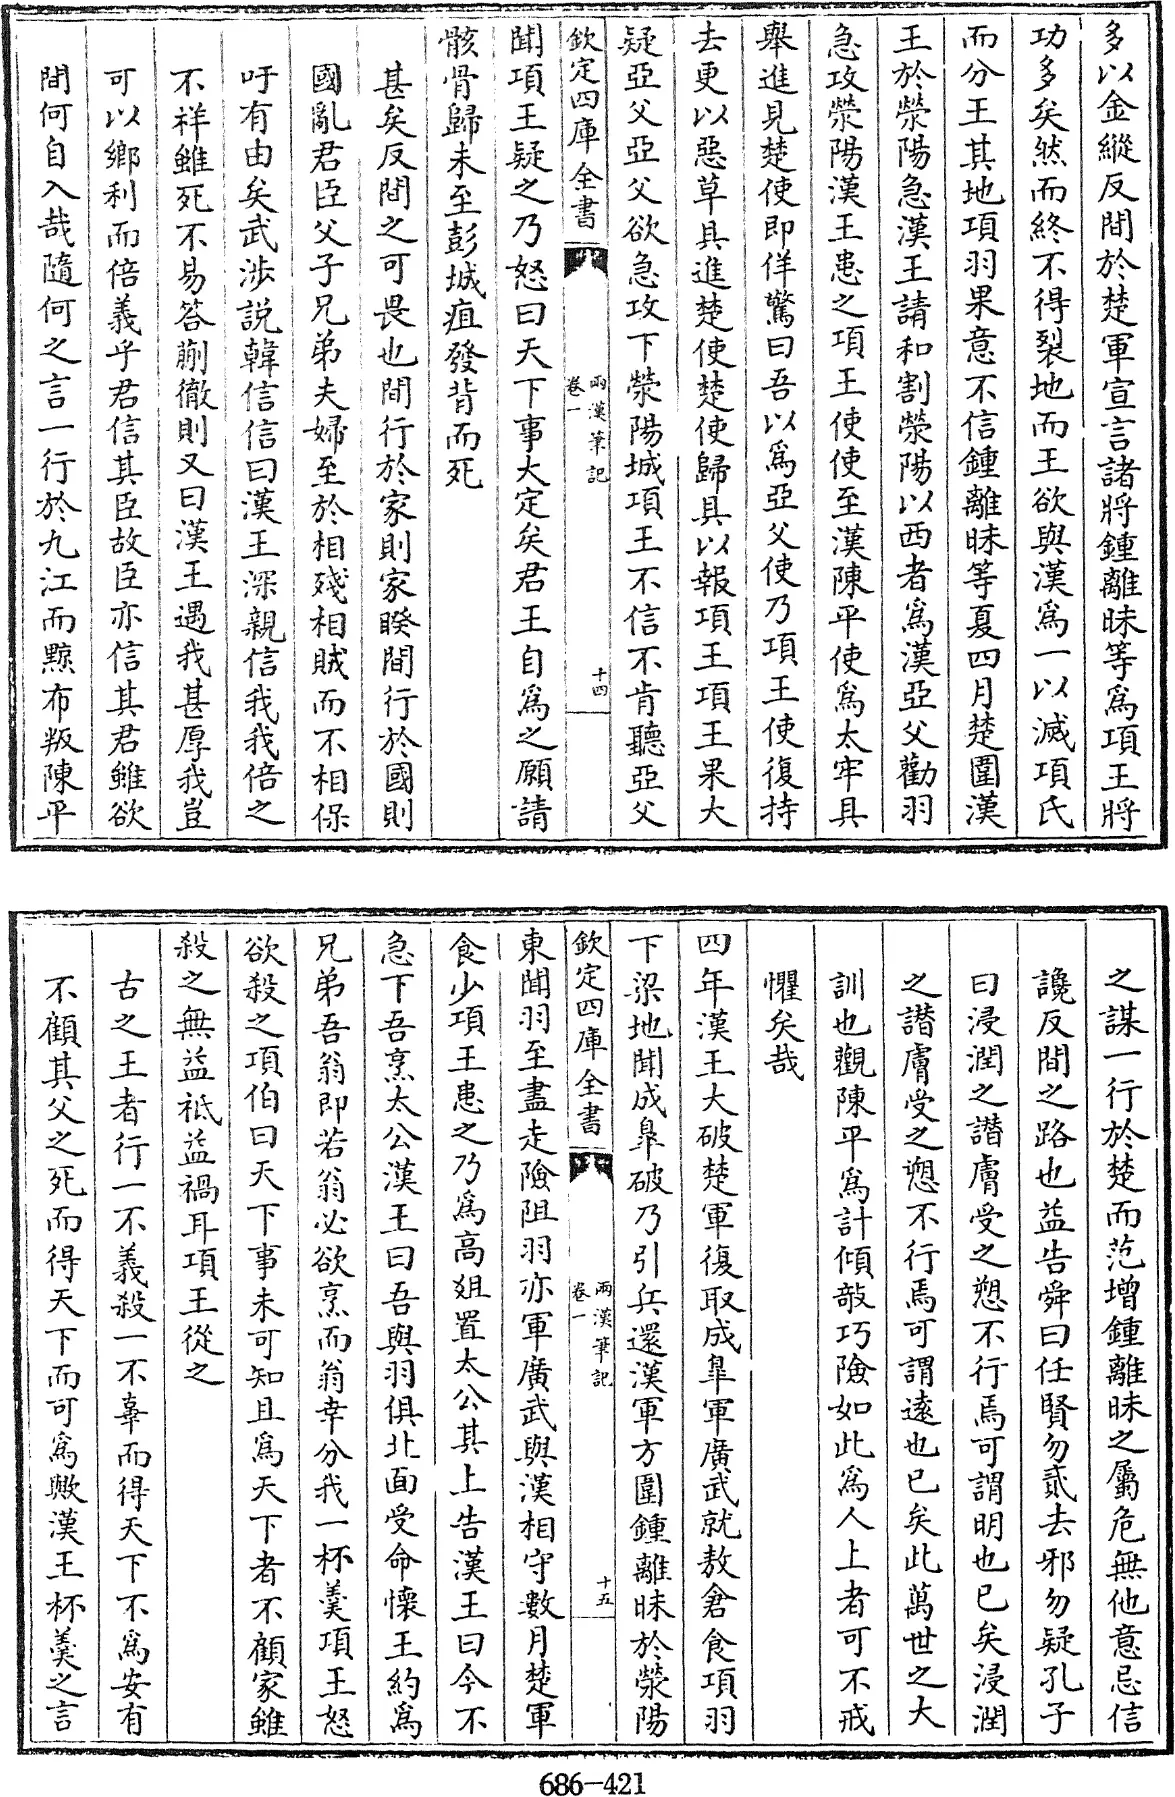 多以金縱反間於楚軍宣言諸將鍾離昧等為項王將
功多矣然而終不得裂地而王欲與漢為一以滅項氏
而分王其地項羽果意不信鍾離昧等夏四月楚圍漢
王於滎陽急漢王請和割滎陽以西者為漢亞父勸羽
急攻滎陽漢王患之項王使使至漢陳平使為太牢具
舉進見楚使即佯驚曰吾以為亞父使乃項王使復持
去更以惡草具進楚使楚使歸具以報項王項王果大
疑亞父亞父欲急攻下滎陽城項王不信不肯聽亞父
欽定四庫全書
兩漢筆記
卷一
十四
聞項王疑之乃怒曰天下事大定矣君王自為之願請
骸骨歸未至彭城疽發背而死
甚矣反間之可畏也間行於家則家睽間行於國則
國亂君臣父子兄弟夫婦至於相殘相賊而不相保
吁有由矣武涉説韓信信曰漢王深親信我我倍之
不祥雖死不易答蒯徹則又曰漢王遇我甚厚我豈
可以鄉利而倍義乎君信其臣故臣亦信其君雖欲
間何自入哉隨何之言一行於九江而黥布叛陳平
之謀一行於楚而范增鍾離昧之屬危無他意忌信
讒反間之路也益告舜曰任賢勿貳去邪勿疑孔子
曰浸潤之譖膚受之愬不行焉可謂明也已矣浸潤
之譖膚受之愬不行焉可謂逺也已矣此萬世之大
訓也觀陳平為計傾敧巧險如此為人上者可不戒
懼矣哉
四年漢王大破楚軍復取成臯軍廣武就敖倉食項羽
下梁地聞成臯破乃引兵還漢軍方圍鍾離昧於滎陽
欽定四庫全書
兩漢筆記
卷一
十五
東聞羽至盡走險阻羽亦軍廣武與漢相守數月楚軍
食少項王患之乃為高俎置太公其上告漢王曰今不
急下吾烹太公漢王曰吾與羽俱北面受命懷王約為
兄弟吾翁即若翁必欲烹而翁幸分我一杯羮項王怒
欲殺之項伯曰天下事未可知且為天下者不顧家雖
殺之無益祗益禍耳項王從之
古之王者行一不義殺一不辜而得天下不為安有
不顧其父之死而得天下而可為歟漢王杯羮之言
686-421